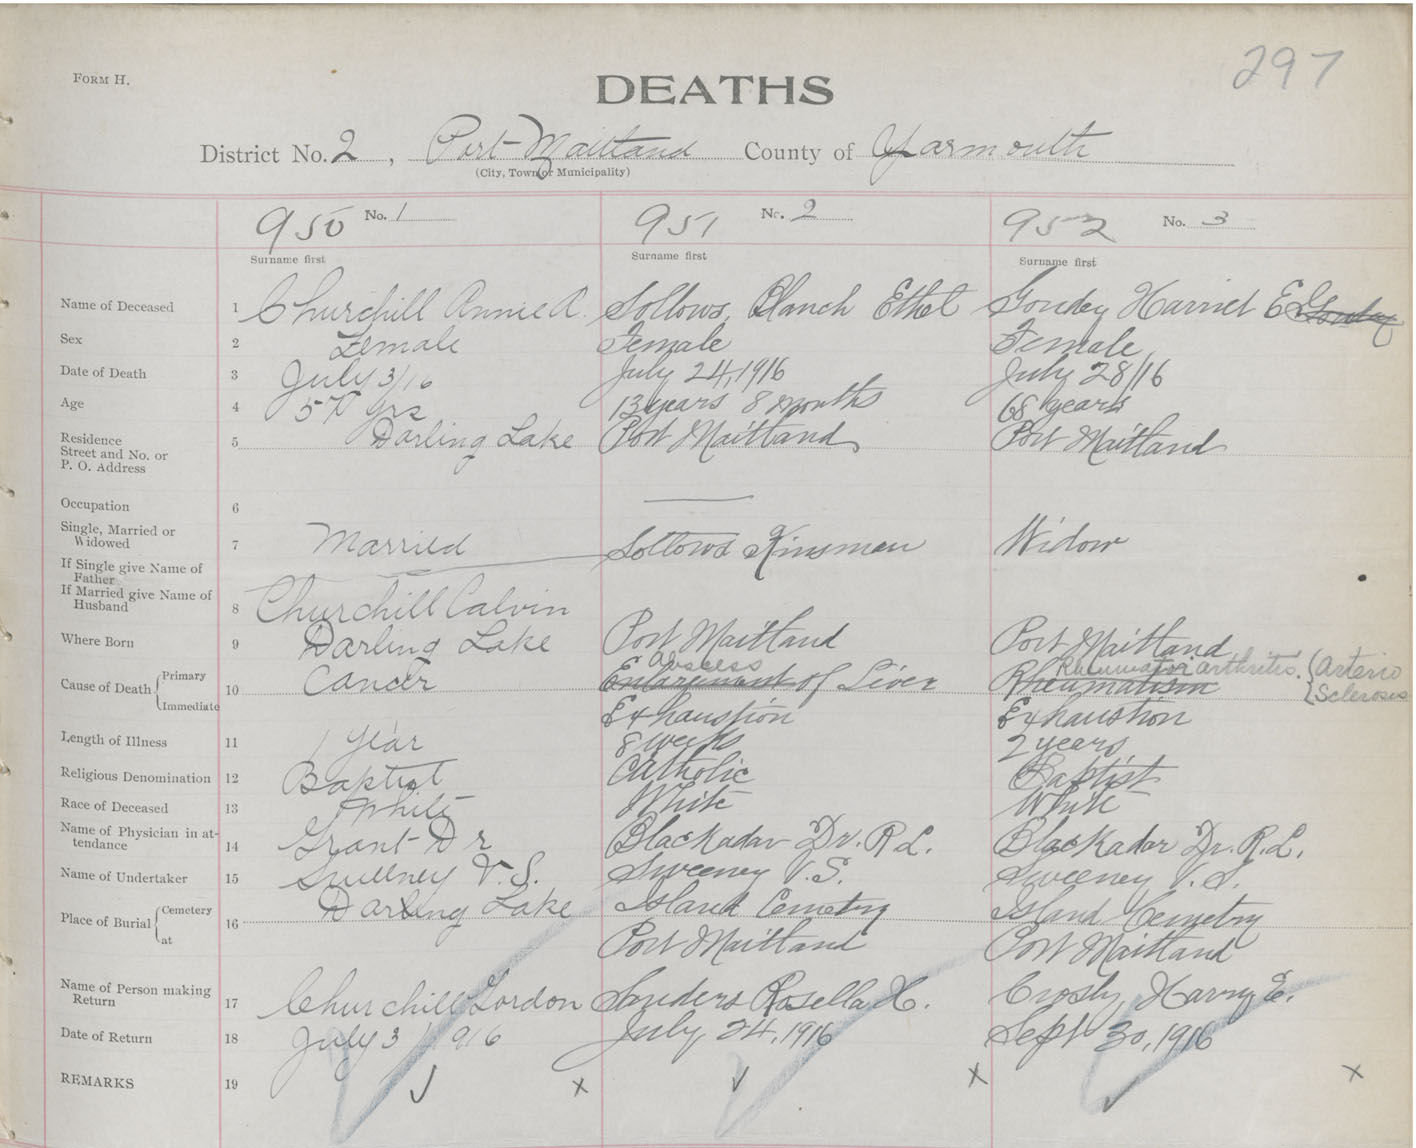 297
FORM H.
DEATHS
District No. 2, Port Maitland County of Yarmouth
(City, Town or Municipality)
950 No. 1 951 No. 2 952 No. 3
Surname first Surname first Surname first
Name of Deceased 1 Churchill Annie A. Sollows, Blanch Ethel Goudey Harriet E Goudey
Sex 2 Female Female Female
Date of Death 3 July 3/16 July 24, 1916 July 28/16
Age 4 yrs 13 years 8 months 68 years
Residence Street and No. or P. O. Address 5 Darling Lake Port Maitland Port Maitland
Occupation 6
Single, Married or Widowed 7 Married Sollows Kinsman Widow
If Single give Name of Father
If Married give Name of Husband 8 Churchill Calvin
Where Born 9 Darling Lake Port Maitland Port Maitland
Abscess arthritis. Arterio
Cause of Death Primary 10 Cancer Enlargement of Liver Rheumatism Sclerosis
Immediate Exhaustion Exhaustion
Length of Illness 11 1 year 8 weeks 2 years
Religious Denomination 12 Baptist Catholic Baptist
Race of Deceased 13 White White White
Name of Physician in attendance 14 Grant Dr Blackadar Dr. R L. Blackadar Dr. R. L.
Name of Undertaker 15 V. S. Sweeney V. S. Sweeney V. S.
Place of Burial Cemetery 16 Darling Lake Island Cemetry Island Cemetry
at Port Maitland Port Maitland
Name of Person making Return 17 Churchill Gordon Sanders Rosella H. Crosby, Harry E.
Date of Return 18 July 3 1916 July 24, 1916 Sept 30, 1916
REMARKS 19 x x x